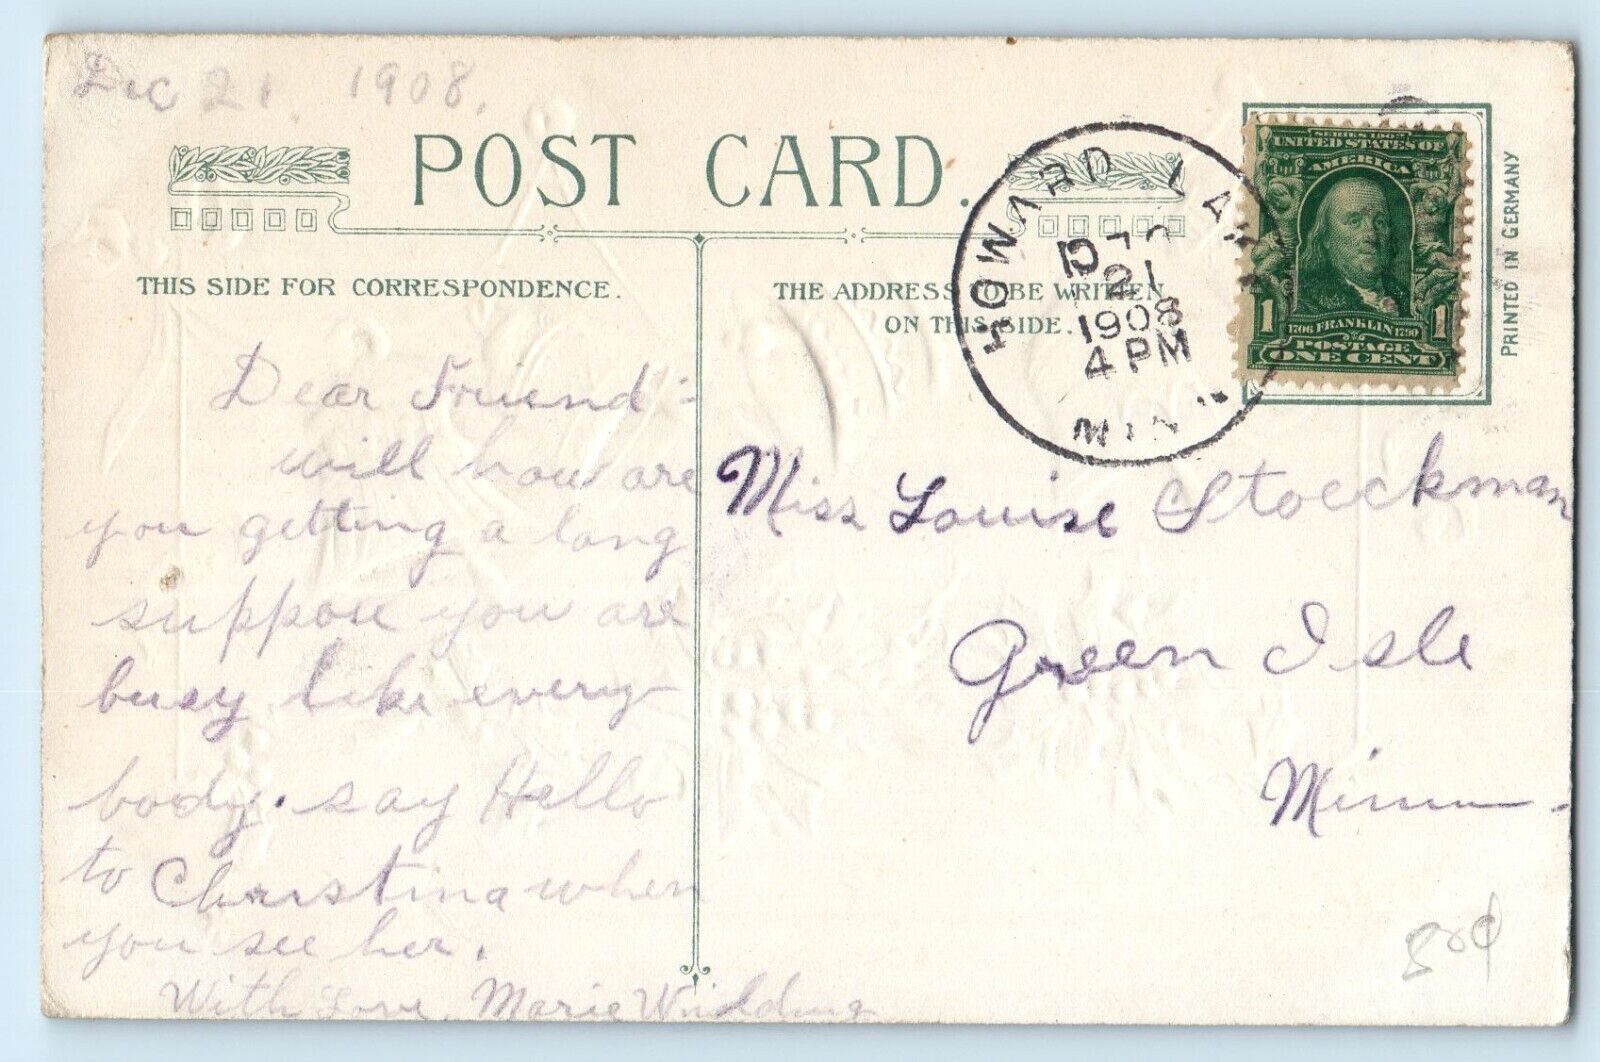 Dec 21 1908.
POST CARD.
THIS SIDE FOR CORRESPONDENCE.
THE ADDRESS TO BE WRITTEN
ON THIS SIDE.
HOWARD LAKE
DEC
21
1908
4 PM
MINN.
SERIES 1902
UNITED STATES OF
AMERICA
1 1706 FRANKLIN 1790 1
POSTAGE
ONE CENT
PRINTED IN GERMANY
Dear Friend -
will how are
you getting a long
suppose you are
busy like every-
body. say Hello
to Christina when
you see her.
With Love, Marie
Miss Louise Stoeckman
Green Isle
Minn
3rd